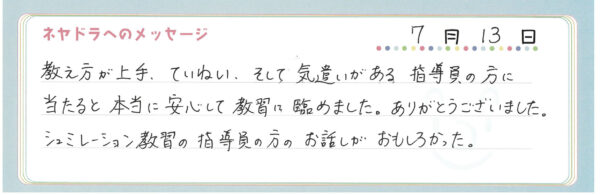 ネヤドラへのメッセージ 7月13日
教え方が上手、ていねい、そして気遣いがある指導員の方に
当たると本当に安心して教習に臨めました。ありがとうございました。
シュミレーション教習の指導員の方のお話しがおもしろかった。